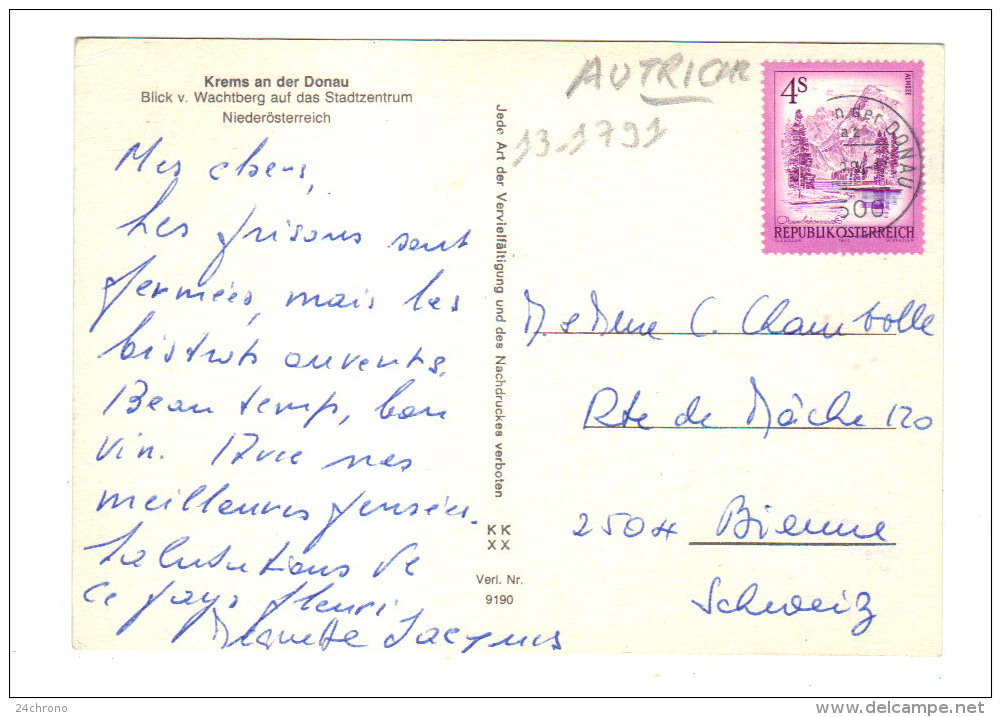 Krems an der Donau
Blick v. Wachtberg auf das Stadtzentrum
Niederösterreich
Mes chers,
Les prisons sont
fermées, mais les
bistrots ouverts.
Beau temps, bon
vin. Avec nos
meilleures pensées.
Salutations de
ce pays fleuri
Jacques
Jede Art der Vervielfältigung und des Nachdruckes verboten
KK
XX
Verl. Nr.
9190
AUTRICHE
13-1791
4 S
ALMSEE
n der DONAU
500
Oberösterreich
REPUBLIK ÖSTERREICH
M. et Mme C. Chambolle
Rte de Mâche 120
2504 Bienne
Schweiz
24chrono
delcampe.net